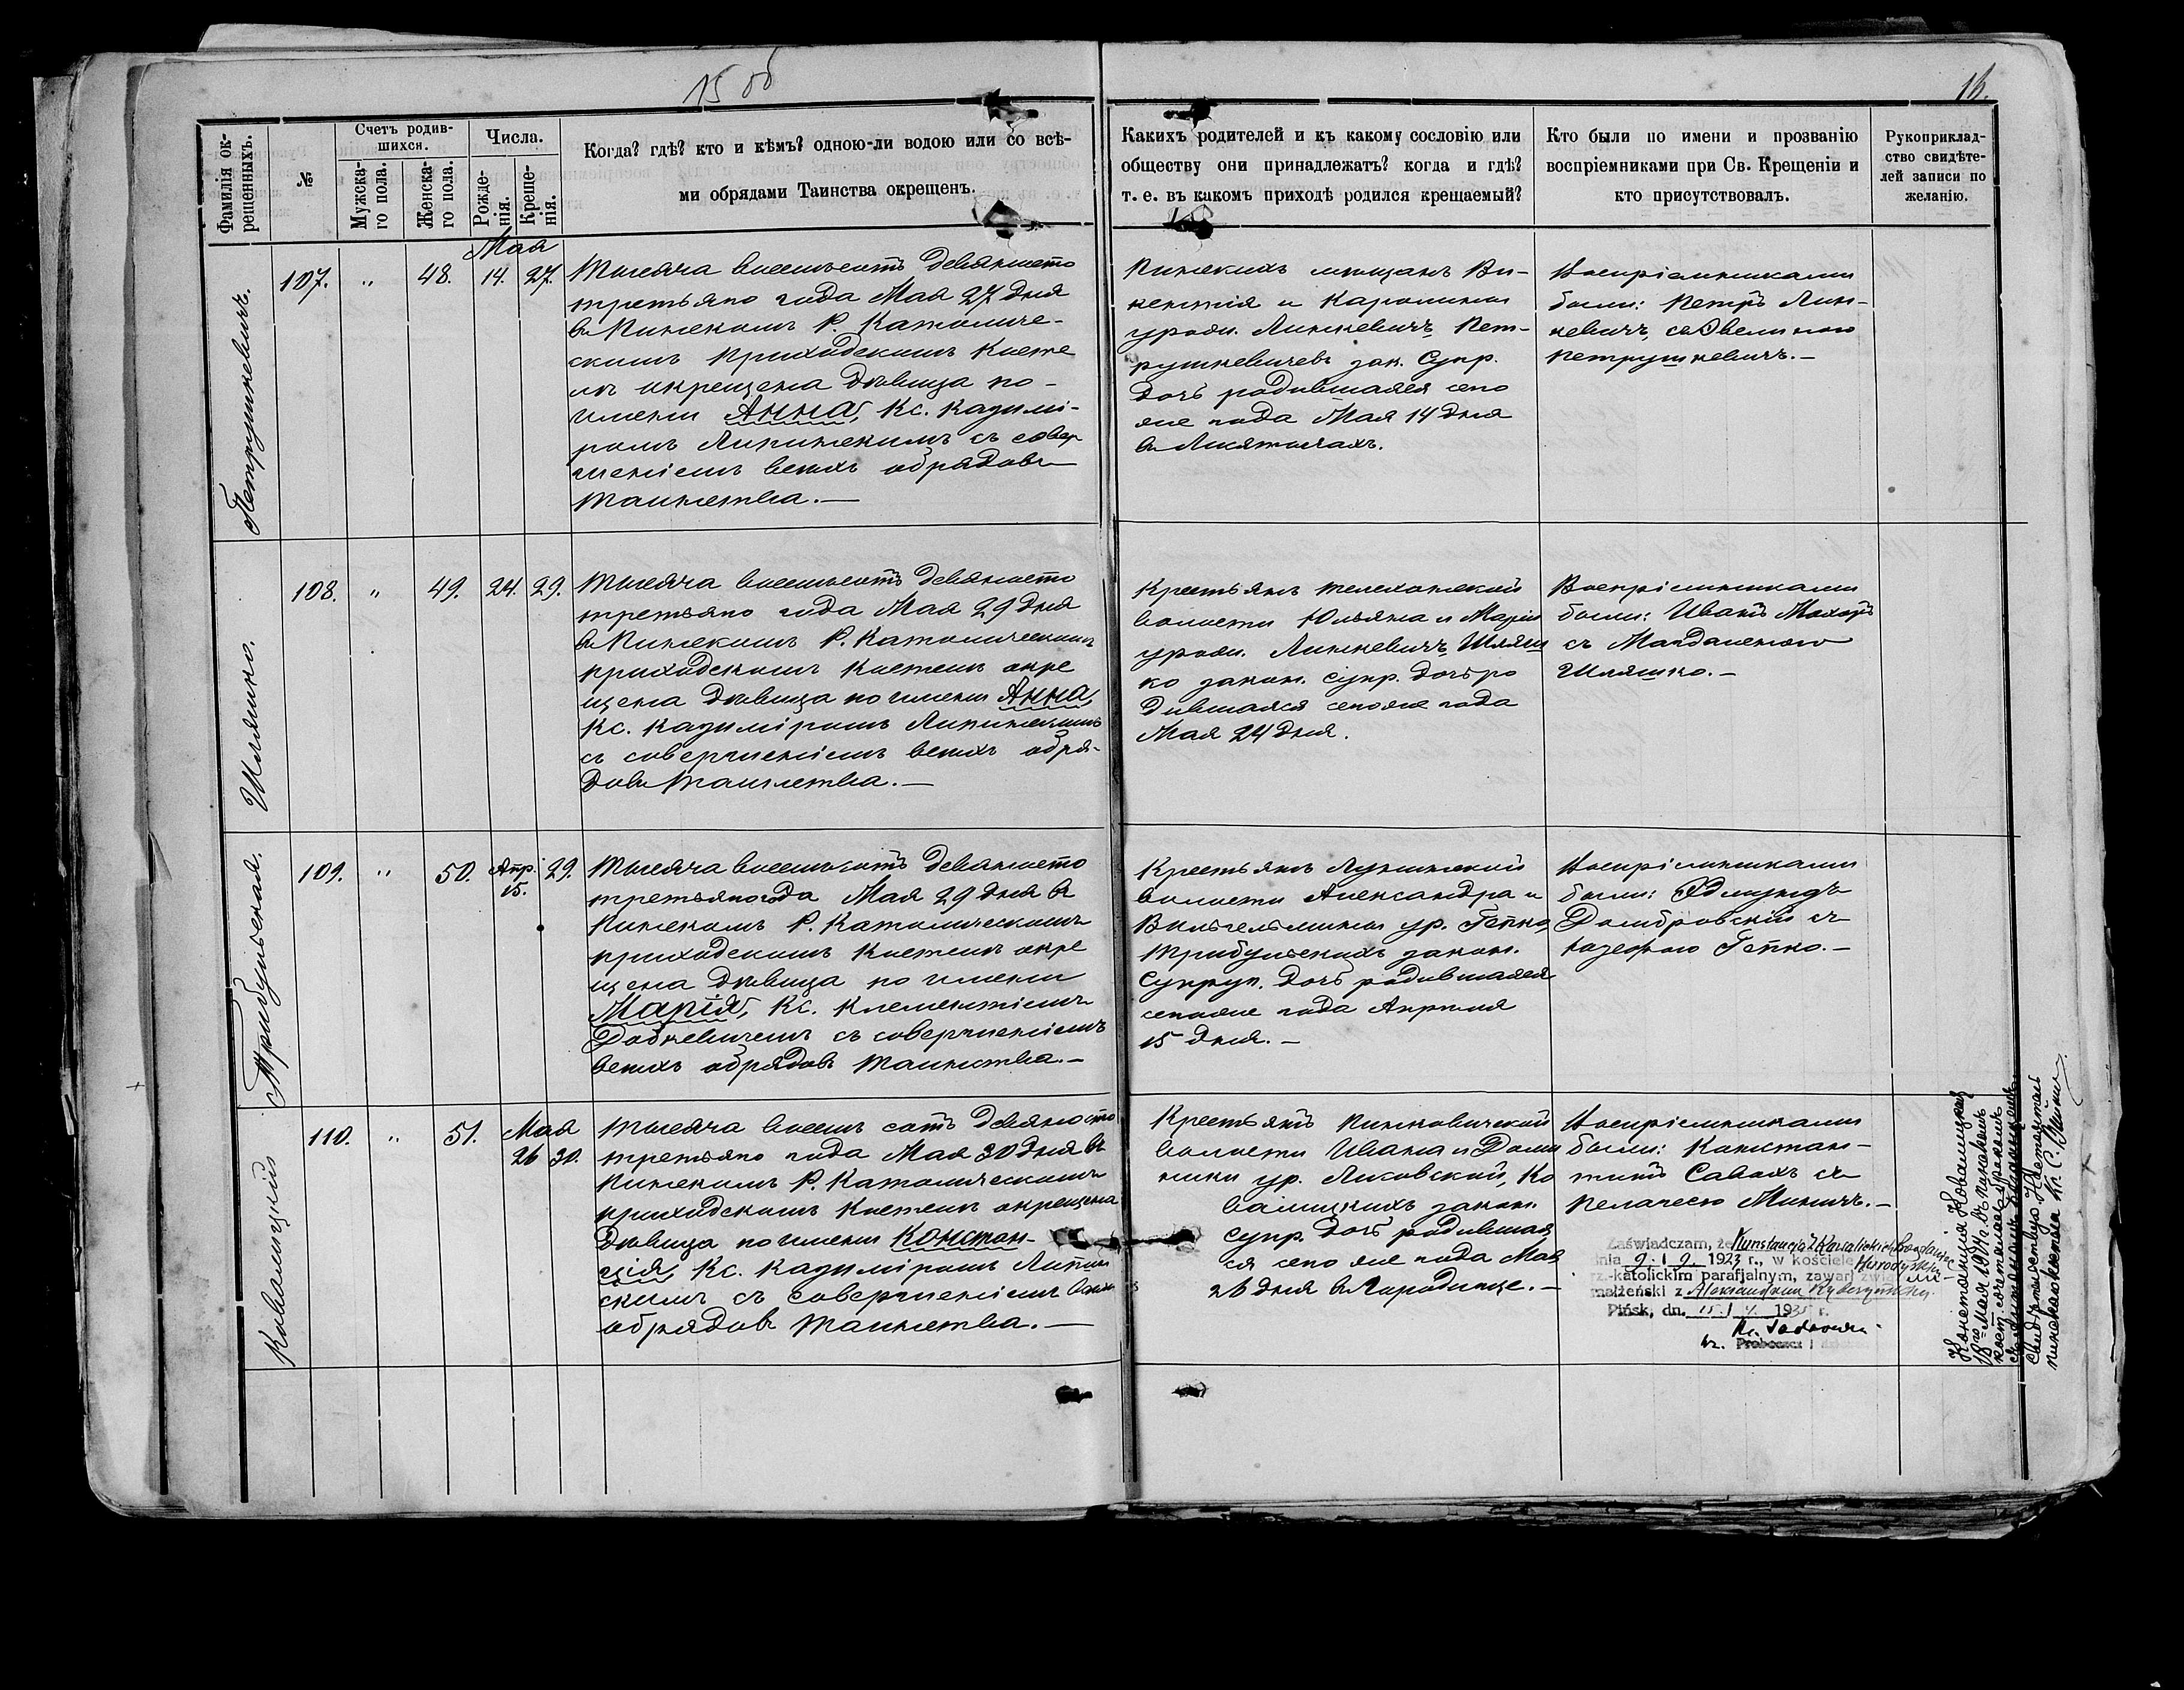 15 об
16.
Фамилія ок-
рещенныхъ.
№
Счетъ родив-
шихся.
Мужска-
го пола.
Женска-
го пола.
Числа.
Рожде-
нія.
Креще-
нія.
Когда? гдѣ? кто и кѣмъ? одною-ли водою или со всѣ-
ми обрядами Таинства окрещенъ.
Какихъ родителей и къ какому сословію или
обществу они принадлежатъ? когда и гдѣ?
т. е. въ какомъ приходѣ родился крещаемый?
Кто были по имени и прозванію
воспріемниками при Св. Крещеніи и
кто присутствовалъ.
Рукоприклад-
ство свидѣте-
лей записи по
желанію.
Петрушкевичъ.
107.
"
48.
Мая
14.
27.
Тысяча восемьсотъ девяносто
третьяго года Мая 27 дня
въ Пинскомъ Р. Католиче-
скомъ приходскомъ косте
лѣ окрещена дѣвица по-
имени Анна, Кс. Казимі-
ромъ Липинскимъ съ совер
шеніемъ всѣхъ обрядовъ
таинства.—
Пинскихъ мѣщанъ Ви-
кентія и Каролины
урожд. Линкевичъ, Пет-
рушкевичевъ зак. Супр.
дочь родившаяся сего
же года Мая 14 дня
въ
Воспріемниками
были: Петръ Лин-
кевичъ, съ Эвелиною
Петрушкевичъ.—
Шляшко.
108.
"
49.
24.
29.
Тысяча восемьсотъ девяносто
третьяго года Мая 29 дня
въ Пинскомъ Р. Католическомъ
приходскомъ костелѣ окре
щена дѣвица по имени Анна,
Кс. Казиміромъ Липинскимъ
съ совершеніемъ всѣхъ обря-
довъ таинства.—
Крестьянъ Телеханской
волости Юльяна и Маріи
урожд. Линкевичъ, Шляш
ко закон. супр. дочь ро
дившаяся сегоже года
Мая 24 дня.
Воспріемниками
были: Иванъ
съ Магдаленою
Шляшко.—
Трибульская.
109.
"
50.
Апр.
15.
29.
Тысяча восемьсотъ девяносто
третьяго года Мая 29 дня въ
Пинскомъ Р. Католическомъ
приходскомъ костелѣ окре
щена дѣвица по имени
Марія, Кс. Клементіемъ
съ совершеніемъ
всѣхъ обрядовъ таинства.—
Крестьянъ Лунинской
волости Александра и
Вильгельмины ур. Гепко,
Трибульскихъ закон.
Супруг. дочь родившаяся
сегоже года Апрѣля
15 дня.—
Воспріемниками
были: Эдмундъ
Домбровскій съ
Юзефою Гепко.—
Ковалицкій
110.
"
51.
Мая
26
30.
Тысяча восемь сотъ девяносто
третьяго года Мая 30 дня въ
Пинскомъ Р. Католическомъ
приходскомъ костелѣ окрещена
дѣвица по имени Констан-
ція, Кс. Казиміромъ Липин
скимъ съ совершеніемъ всѣхъ
обрядовъ таинства.—
Крестьянъ Пинковичской
волости Ивана и Доми
ники ур. Ко
валицкихъ закон.
супр. дочь родившая
ся сего же года Мая
26 дня въ Городище.—
Воспріемниками
были: Констан-
тинъ съ
Пелагеею Миничъ.—
Zaświadczam, że Konstancja z Kowalickich
dnia 9. I 9. 1923 r., w kościele
rz.-katolickim parafjalnym, zawarł
małżeński z Aleksandrem
Pińsk, dn. 15. I 193 r.
Proboszcz
Констанція Ковалицкая
18го Мая 19 въ Пинскомъ
кост. сочеталась бракомъ